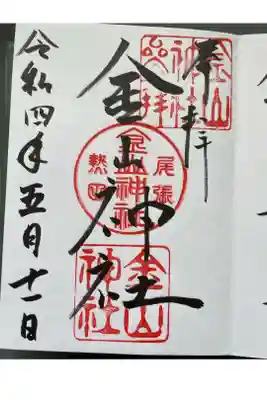 奉拝
金山神社
令和四年五月十一日
金山神社
尾張
熱田
金山神社